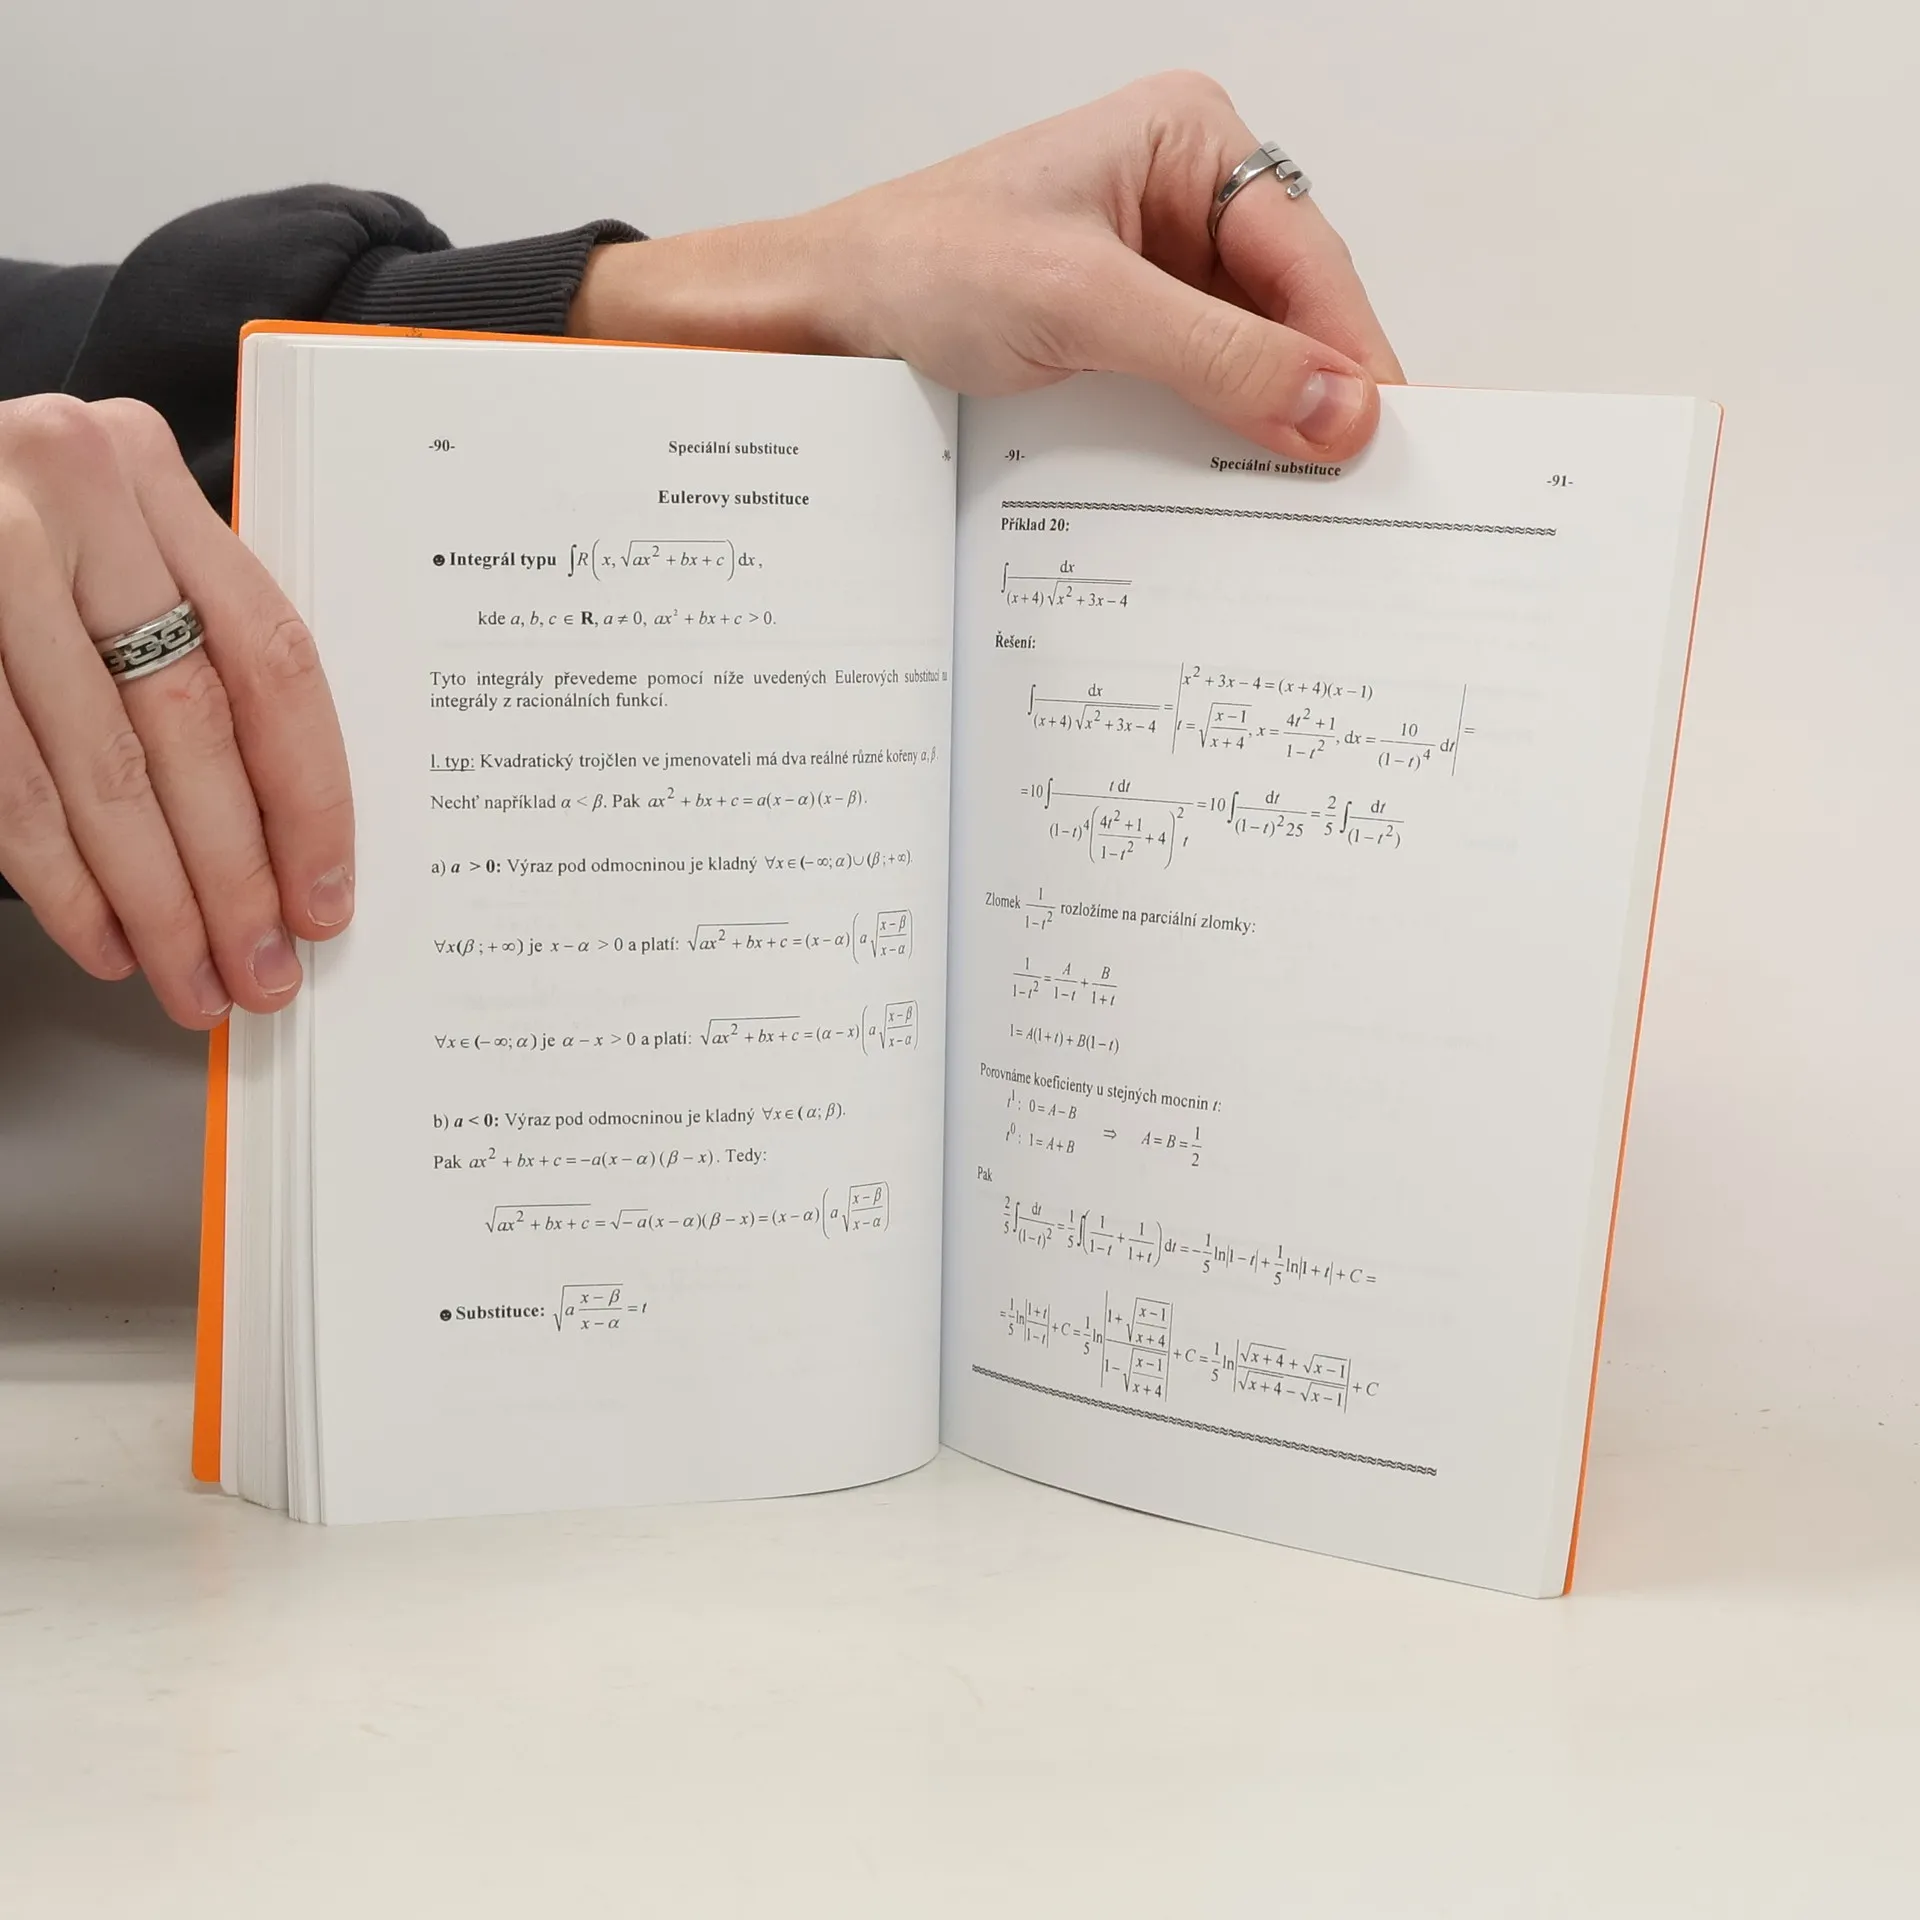 -90- Speciální substituce
Eulerovy substituce
☻ Integrál typu ∫R(x, √(ax² + bx + c)) dx,
kde a, b, c ∈ R, a ≠ 0, ax² + bx + c > 0.
Tyto integrály převedeme pomocí níže uvedených Eulerových substitucí na
integrály z racionálních funkcí.
1. typ: Kvadratický trojčlen ve jmenovateli má dva reálné různé kořeny α, β.
Nechť například α < β. Pak ax² + bx + c = a(x − α)(x − β).
a) a > 0: Výraz pod odmocninou je kladný ∀x ∈ (− ∞; α) ∪ (β; + ∞).
∀x(β; + ∞) je x − α > 0 a platí: √(ax² + bx + c) = (x − α)(a√((x − β)/(x − α)))
∀x ∈ (− ∞; α) je α − x > 0 a platí: √(ax² + bx + c) = (α − x)(a√((x − β)/(x − α)))
b) a < 0: Výraz pod odmocninou je kladný ∀x ∈ (α; β).
Pak ax² + bx + c = −a(x − α)(β − x). Tedy:
√(ax² + bx + c) = √−a(x − α)(β − x) = (x − α)(a√((x − β)/(x − α)))
☻ Substituce: √(a (x − β)/(x − α)) = t
-91- Speciální substituce -91-
Příklad 20:
∫ dx/((x + 4)√(x² + 3x − 4))
Řešení:
∫ dx/((x + 4)√(x² + 3x − 4)) = | x² + 3x − 4 = (x + 4)(x − 1)
t = √((x − 1)/(x + 4)), x = (4t² + 1)/(1 − t²), dx = 10/(1 − t)⁴ dt | =
= 10∫ t dt/((1 − t)⁴((4t² + 1)/(1 − t²) + 4)² t) = 10∫ dt/((1 − t)² 25) = 2/5 ∫ dt/(1 − t²)
Zlomek 1/(1 − t²) rozložíme na parciální zlomky:
1/(1 − t²) = A/(1 − t) + B/(1 + t)
1 = A(1 + t) + B(1 − t)
Porovnáme koeficienty u stejných mocnin t:
t¹: 0 = A − B
t⁰: 1 = A + B ⇒ A = B = 1/2
Pak
2/5 ∫ dt/(1 − t)² = 1/5 ∫(1/(1 − t) + 1/(1 + t)) dt = −1/5 ln|1 − t| + 1/5 ln|1 + t| + C =
= 1/5 ln|(1 + t)/(1 − t)| + C = 1/5 ln|(1 + √((x − 1)/(x + 4)))/(1 − √((x − 1)/(x + 4)))| + C = 1/5 ln|(√(x + 4) + √(x − 1))/(√(x + 4) − √(x − 1))| + C